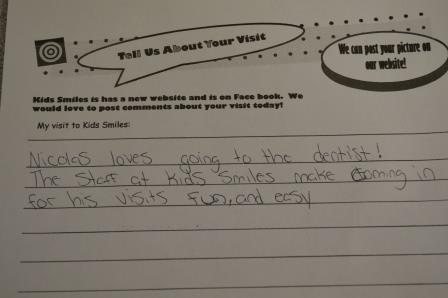 Tell Us About Your Visit
We can post your picture on
our website!
Kids Smiles is has a new website and is on Face book. We
would love to post comments about your visit today!
My visit to Kids Smiles:
Nicolas loves going to the dentist!
The Staff at Kids Smiles make coming in
for his visits fun, and easy